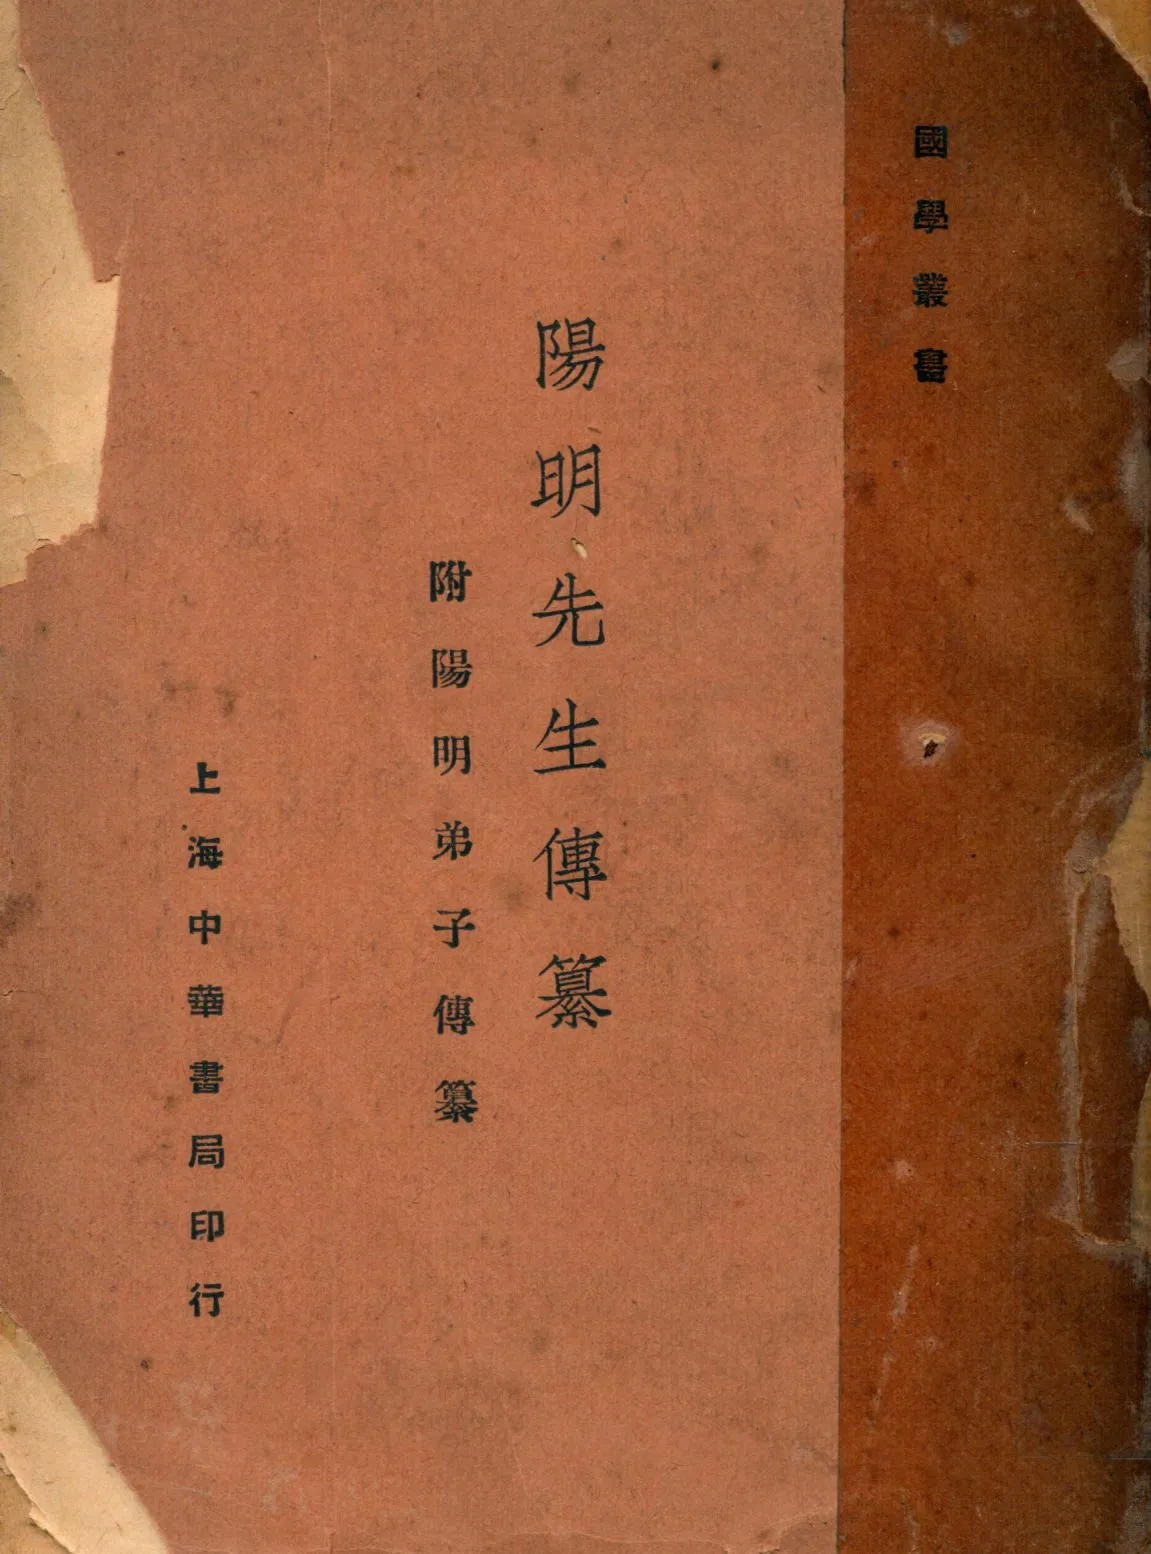 國學叢書
陽明先生傳纂
附陽明弟子傳纂
上海中華書局印行